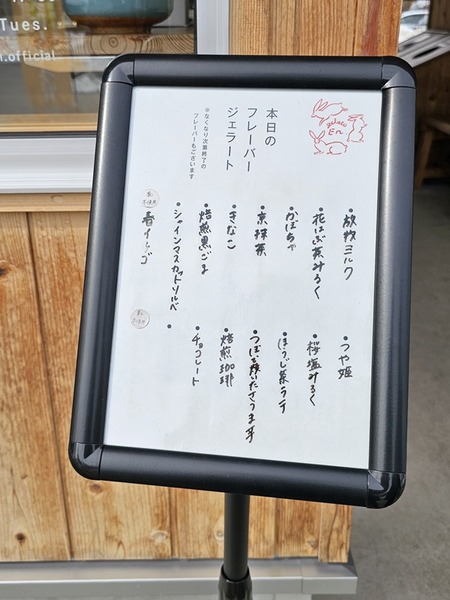 Tues.
n.official
gelato
En
本日の
フレーバー
ジェラート
※なくなり次第終了の
フレーバーもございます
・放牧ミルク
・花はぶ茶みるく
・かぼちゃ
・京抹茶
・きなこ
・焙煎黒ごま
・シャインマスカットソルベ
乳不使用
春イチゴ
・つや姫
・桜塩みるく
・ほうじ茶ラテ
・つぼで焼いたさつま芋
・焙煎珈琲
・チョコレート
・